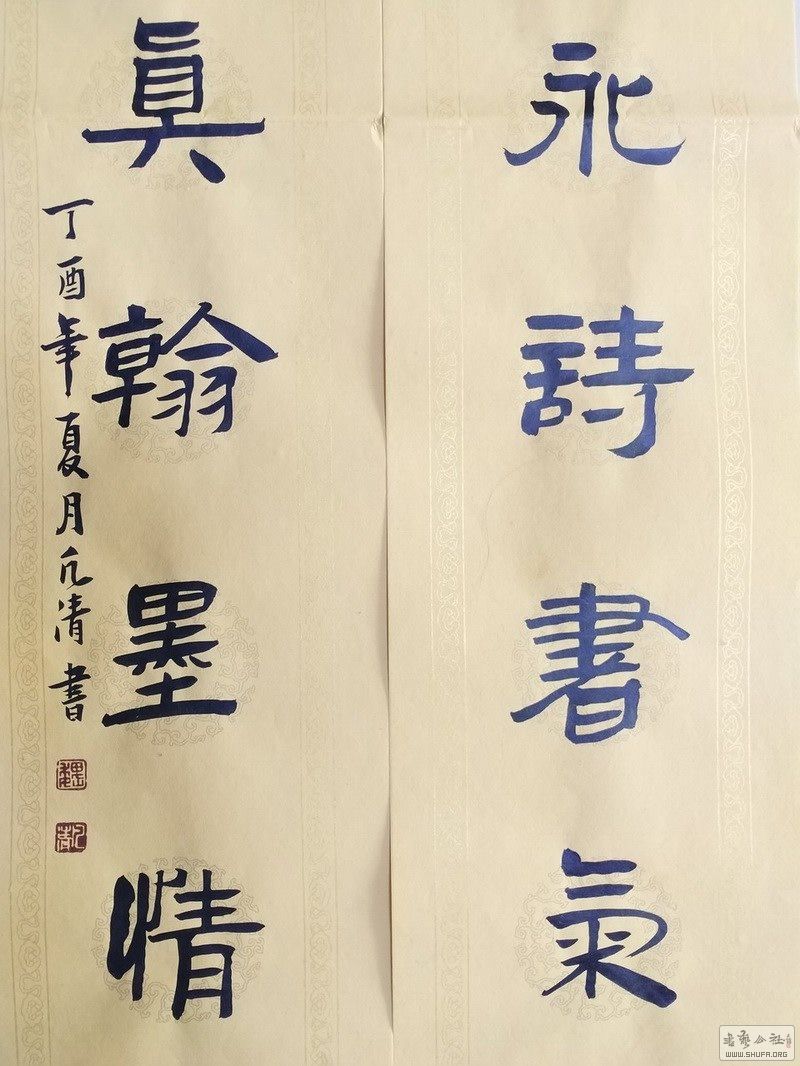 永詩書氣
眞翰墨情
丁酉年夏月凡清書
書藝公社
WWW.SHUFA.ORG